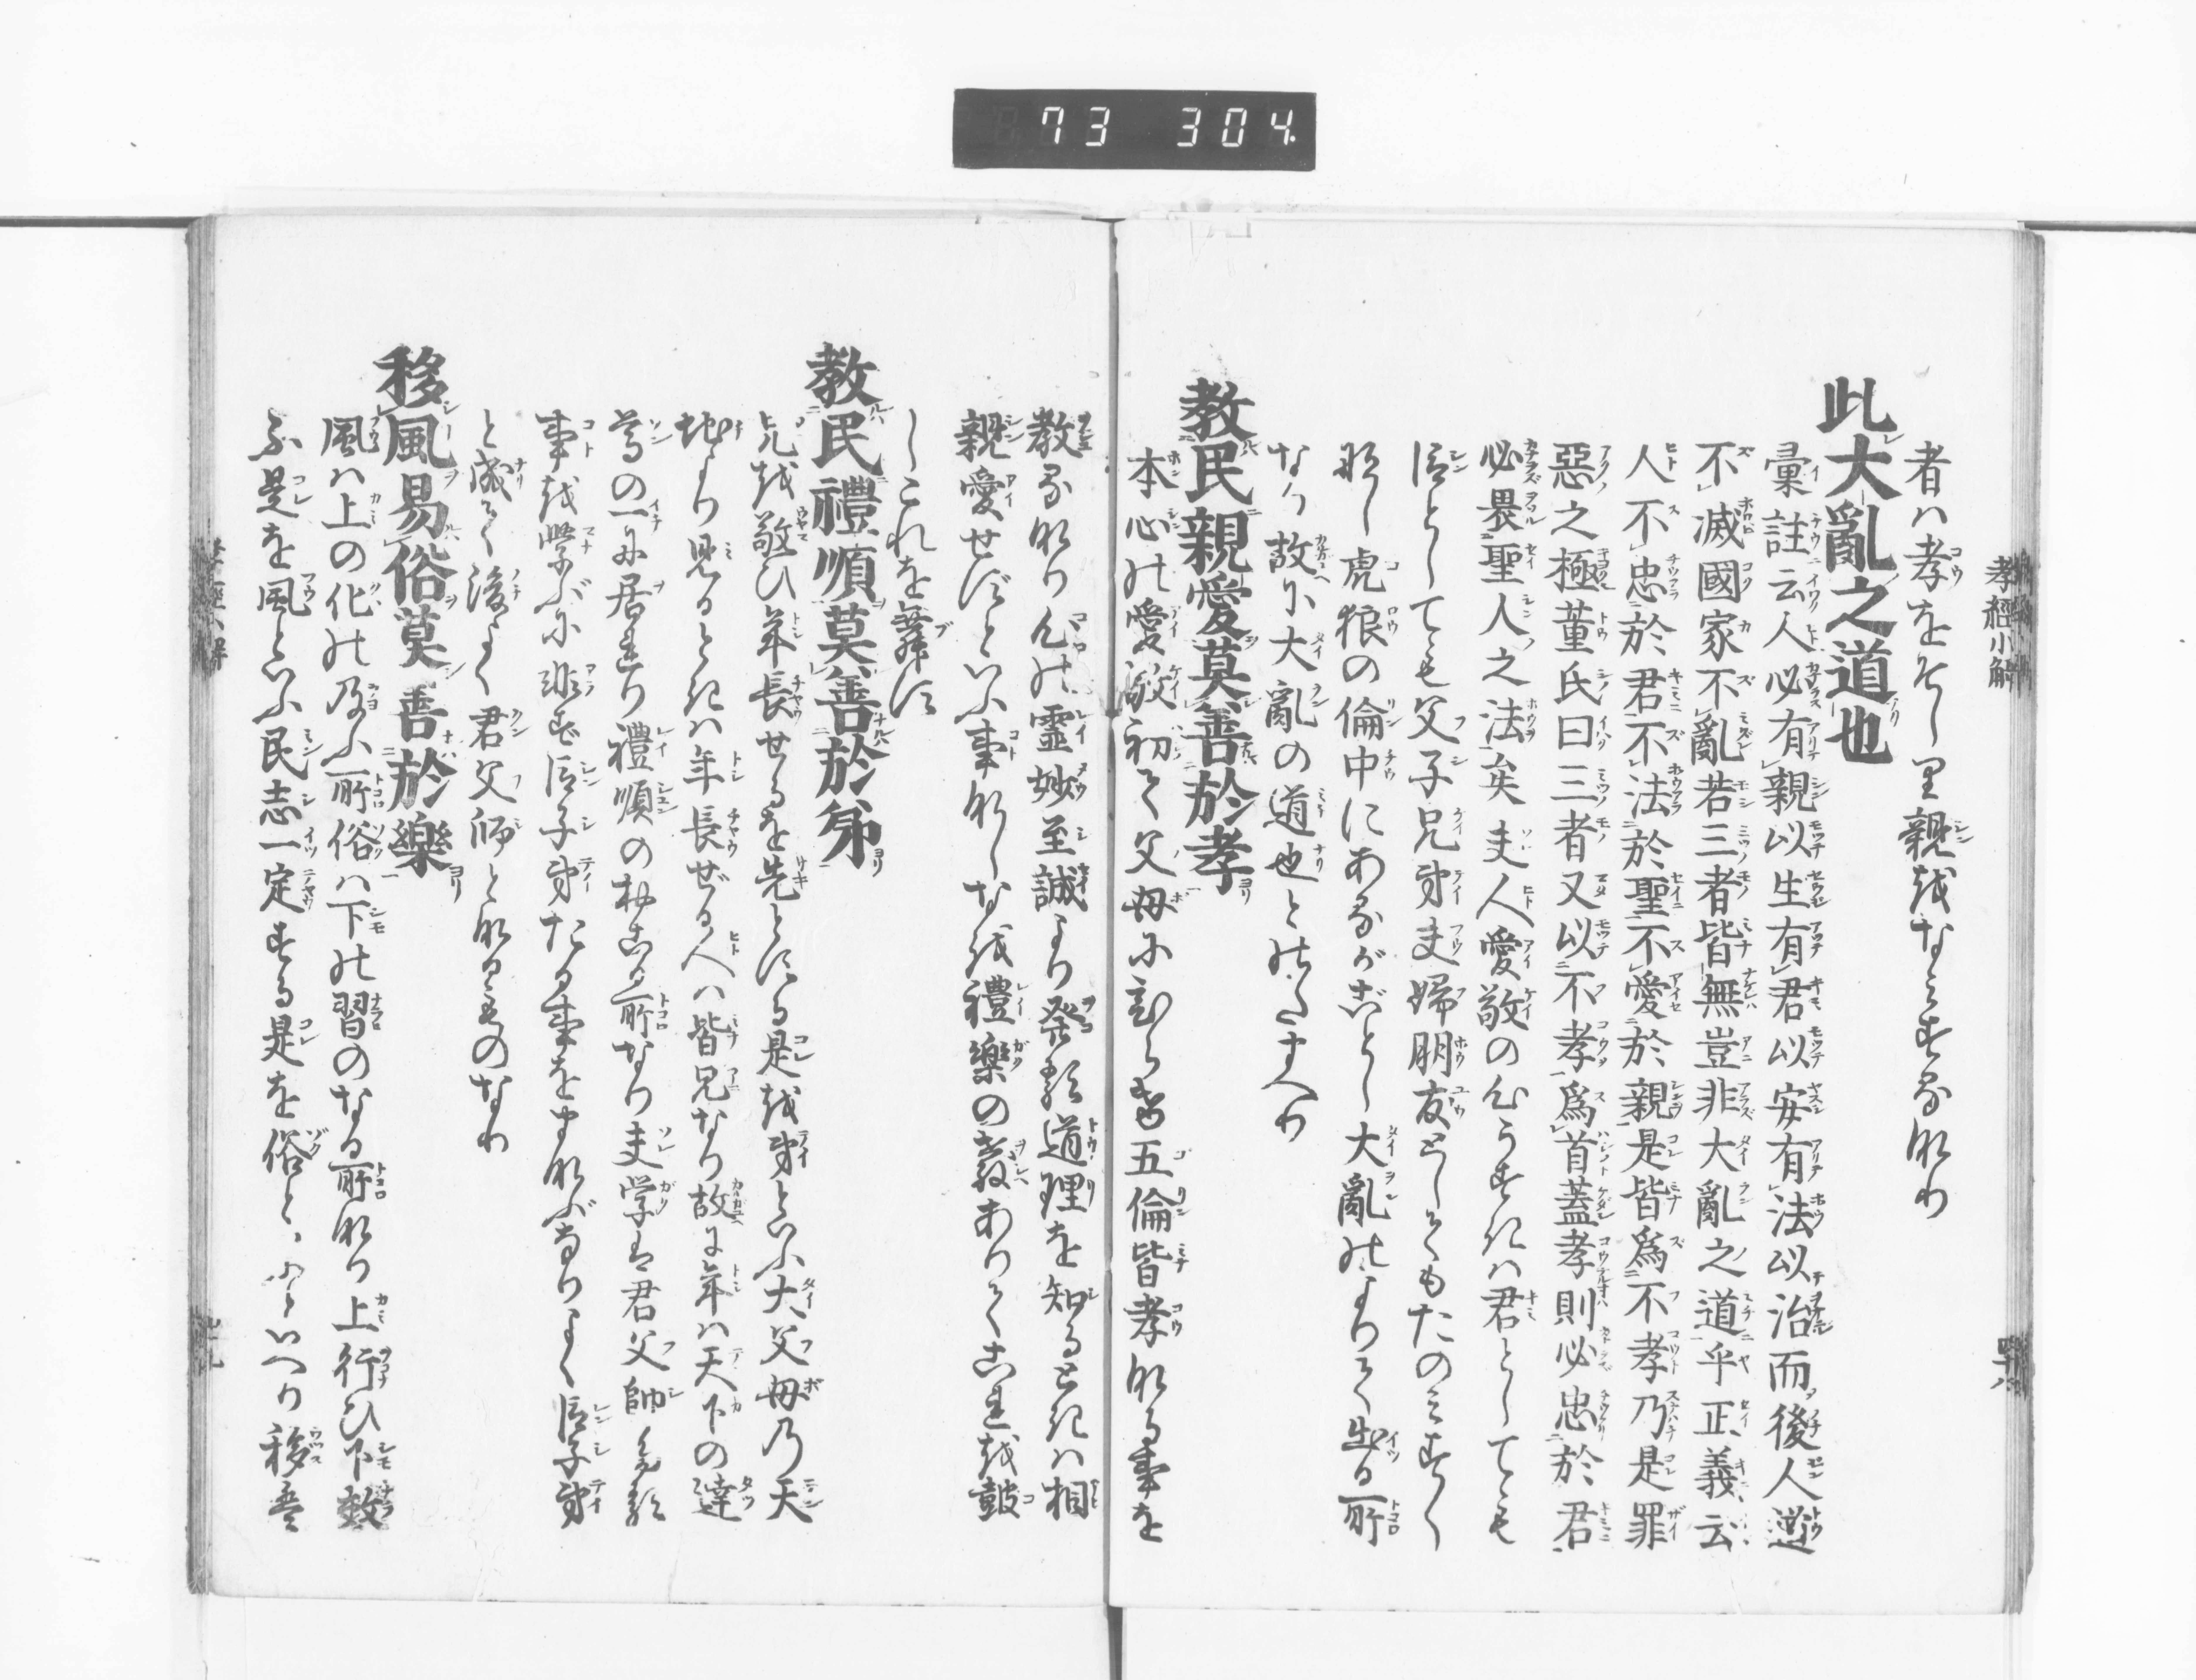 73 304
孝經小解
者ハ孝をそしり親をなみする なり
此大亂之道也
彙註云人必有親以生有君以安有法以治而後人道
不滅國家不亂若三者皆無豈非大亂之道乎正義云
人不忠於君不法於聖不愛於親是皆爲不孝乃是罪
惡之極董氏曰三者又以不孝爲首蓋孝則必忠於君
必畏聖人之法矣夫人愛敬の心うすければ君としても
臣としても父子兄弟夫婦朋友としてもたのみすくし
なし虎狼の倫中にあるがごとし大亂のよりて出る所
なり故に大亂の道也とのたまへり
教民親愛莫善於孝
本心の愛敬初て父母に 五倫皆孝なる事を
教るなり心の靈妙至誠より發る道理を知るときは相
親愛せずといふ事なしな を禮樂の教ありてこれを鼓
しこれを舞す
教民禮順莫善於弟
兄を敬ひ年長せるを先とする是を弟といふ大父母乃天
地より見るときは年長ぜる人は皆兄なり故に年は天下の達
尊の一に居れり禮順の おこる所なり夫学は君父師たる
事を學ぶに非ず臣子弟たる事をまなぶなりよく臣子弟
と成て後よく君父師となるものなり
移風易俗莫善於樂
風は上の化の及ふ所俗は下の習のなる所なり上行ひ下效
ふ是を風といふ民志一定する是を俗と いへり移